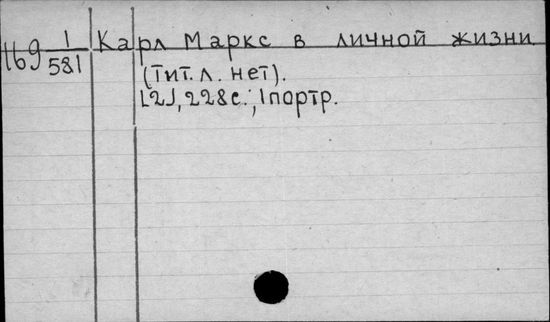 Карл Маркс в личной жизни
1169 1/581
(тит. л. нет).
[2], 228 с.; 1 портр.